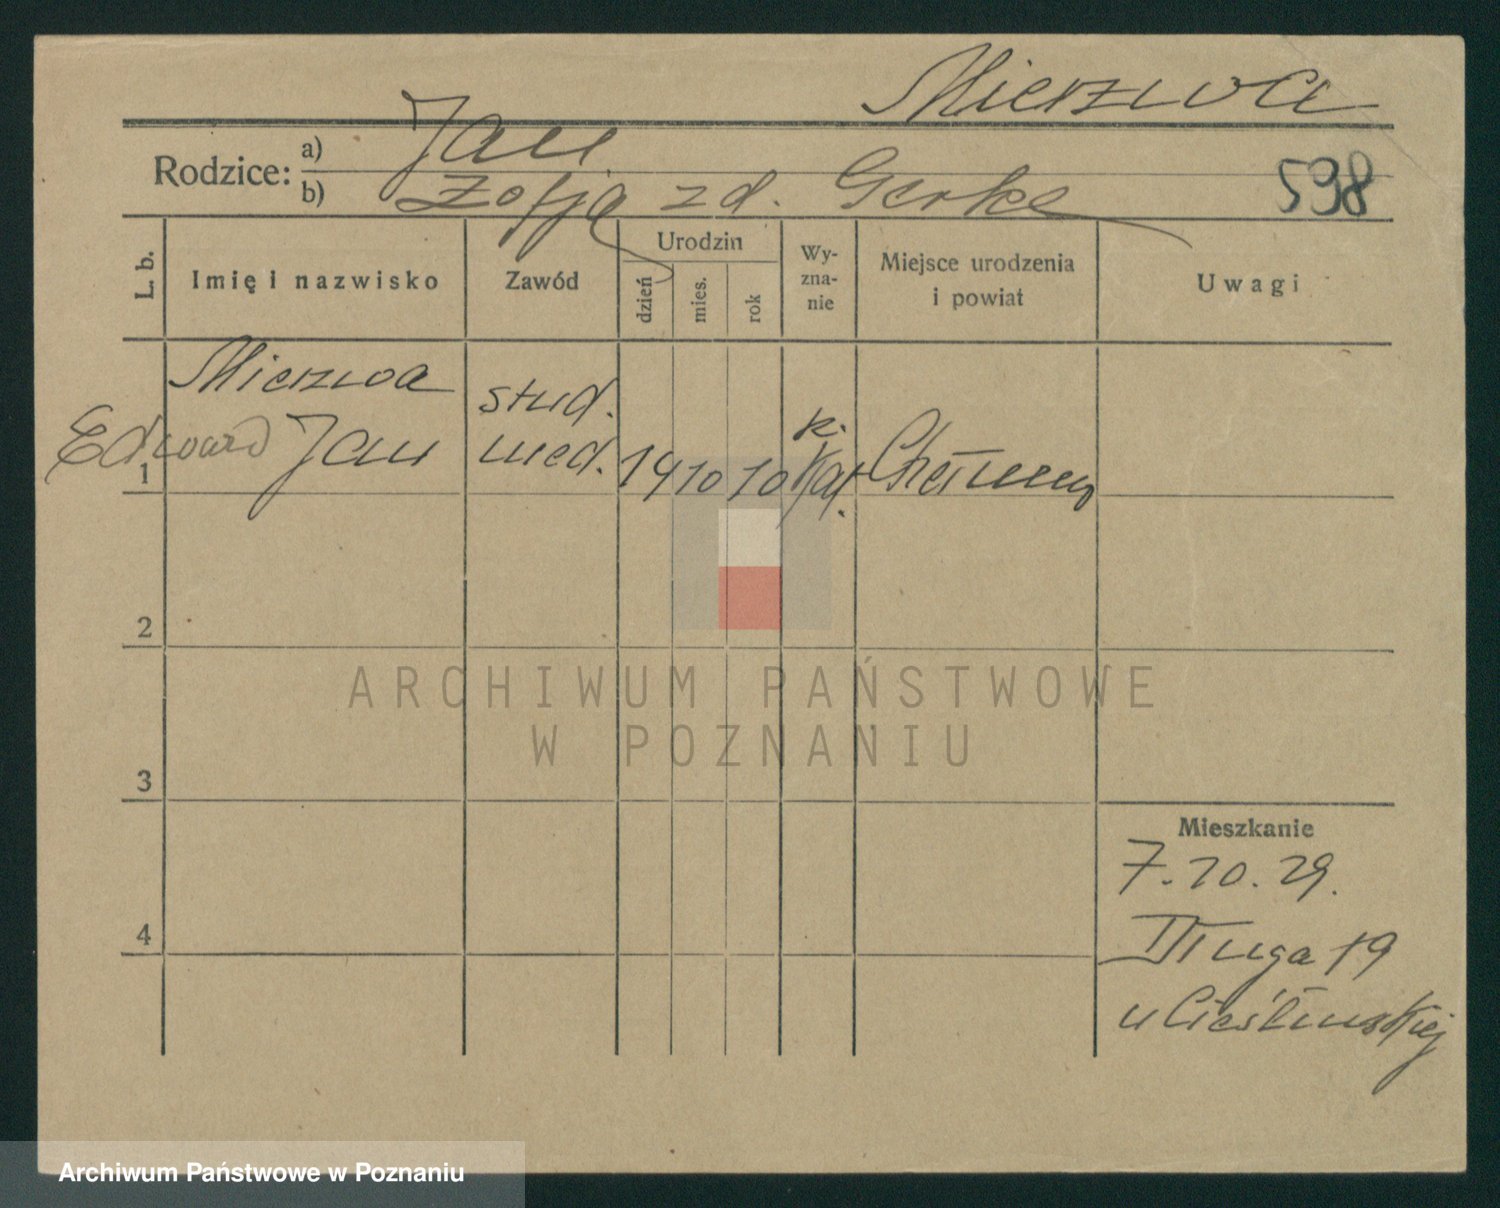 Mierzwa
Rodzice: a) Jan
b) Zofja zd. Gerke
598
L. b.
Imię i nazwisko
Zawód
Urodzin
dzień
mies.
rok
Wy-
zna-
nie
Miejsce urodzenia
i powiat
Uwagi
Mierzwa
Edward Jan
stud.
med.
14 10 10
R.
Kat.
Chełmno
1
2
3
4
ARCHIWUM PAŃSTWOWE
W POZNANIU
Mieszkanie
7.10.29.
Długa 19
u Cieślińskiej
Archiwum Państwowe w Poznaniu